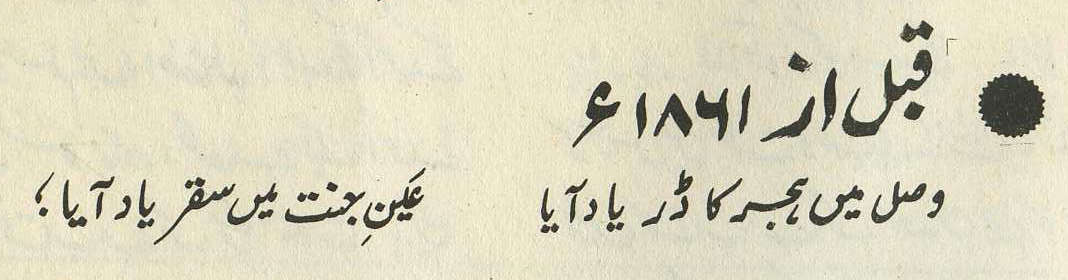 قبل از ۱۸۶۱ء
وصل میں ہجر کا ڈر یاد آیا عینِ جنت میں سقر یاد آیا؛